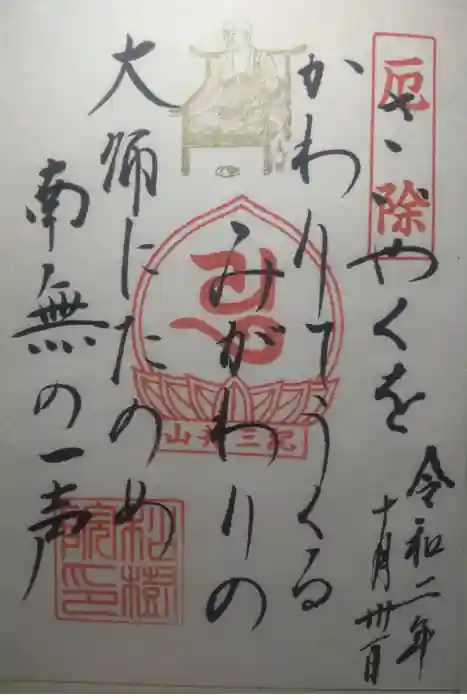 厄除
さいやくを
かわりてうくる
みがわりの
大師にたのめ
南無の一声
令和二年
十月卅一日
紀三井山
松樹
院印